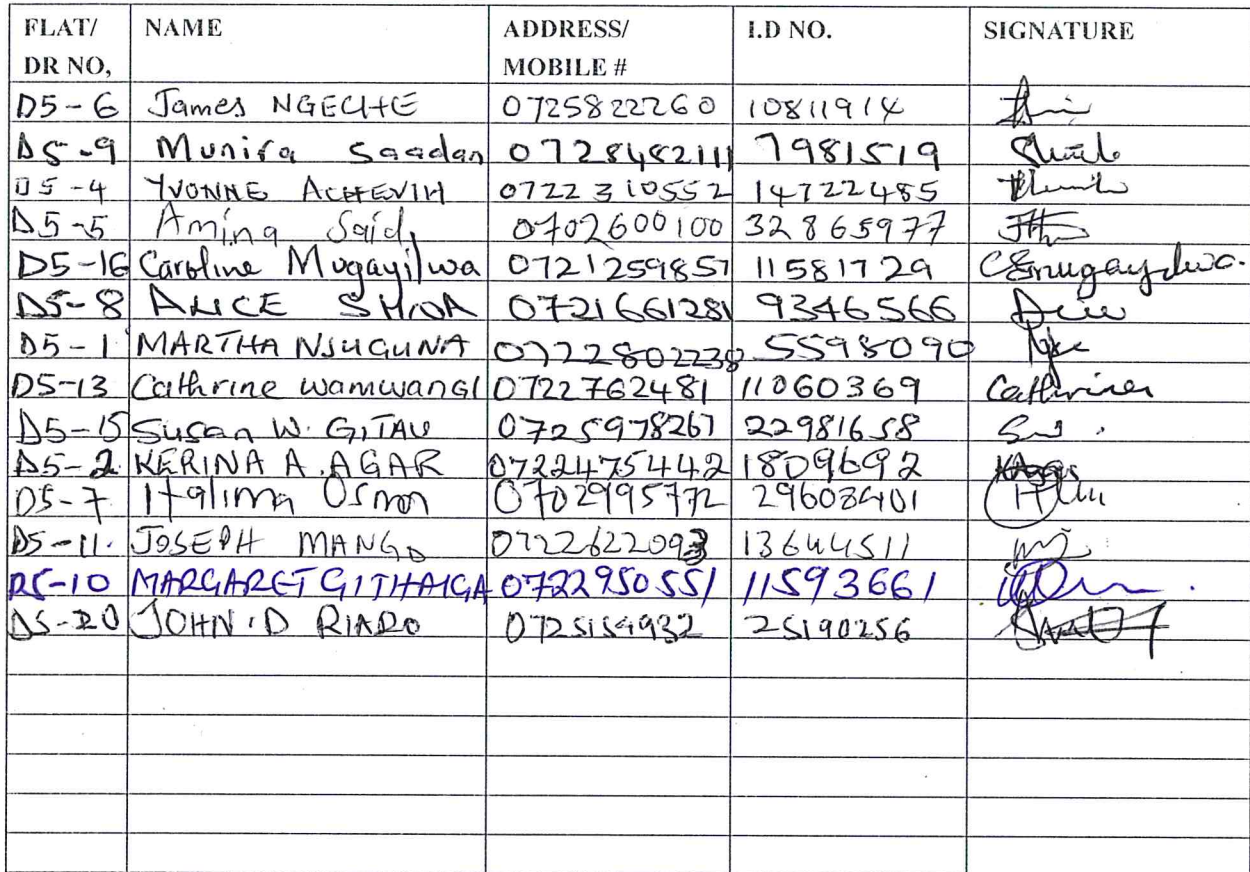 FLAT/ NAME ADDRESS/ I.D NO. SIGNATURE
DR NO, MOBILE #
D5-6 James NGECHE 0725822260 10811914
D5-9 Munira Saadan 0728482111 7981519
D5-4 YVONNE ACHEVIH 0722310552 14722485
D5-5 Amina Said 0702600100 32865977
D5-16 Caroline Mugayilwa 0721259857 11581729
D5-8 ALICE SHIDA 0721661281 9346566
D5-1 MARTHA NJUGUNA 0722802238 5598090
D5-13 Cathrine wamwangi 0722762481 11060369 Cathrine
D5-15 Susan W. GITAU 0725978267 22981658
D5-2 KERINA A. AGAR 0722475442 1809692
D5-7 Halima Osman 0702995772 29608401
D5-11. JOSEPH MANGO 0722622093 13644511
D5-10 MARGARET GITHAIGA 0722950551 11593661
D5-20 JOHN D RIARO 0725154932 25190256